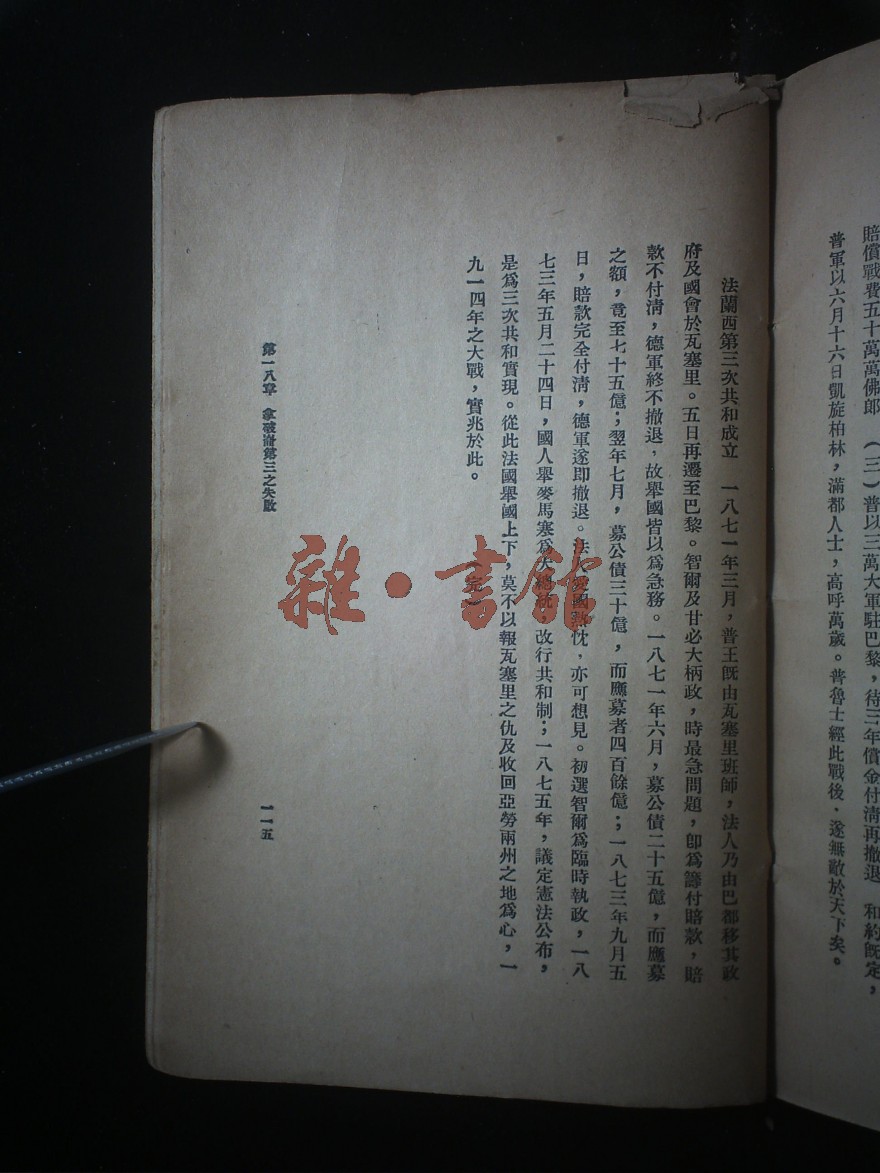 賠償戰費五十萬萬佛郎 (三)普以三萬大軍駐巴黎，待三年償金付淸再撤退 和約旣定，
普軍以六月十六日凱旋柏林，滿都人士，高呼萬歲。普魯士經此戰後，遂無敵於天下矣。
法蘭西第三次共和成立 一八七一年三月，普王旣由瓦塞里班師，法人乃由巴都移其政
府及國會於瓦塞里。五日再遷至巴黎。智爾及甘必大柄政，時最急問題，卽爲籌付賠款，賠
款不付淸，德軍終不撤退，故舉國皆以爲急務。一八七一年六月，募公債二十五億，而應募
之額，竟至七十五億；翌年七月，募公債三十億，而應募者四百餘億；一八七三年九月五
日，賠款完全付淸，德軍遂即撤退。法人愛國熱忱，亦可想見。初選智爾爲臨時執政，一八
七三年五月二十四日，國人舉麥馬塞爲大總統，改行共和制；一八七五年，議定憲法公布，
是爲三次共和實現。從此法國舉國上下，莫不以報瓦塞里之仇及收回亞勞兩州之地爲心，一
九一四年之大戰，實兆於此。 (完)
第一八章 拿破崙第三之失敗
一一五
雜·書館